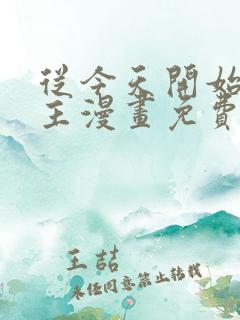 從今天開始
王漫畫免費
王喆
未经同意禁止转载